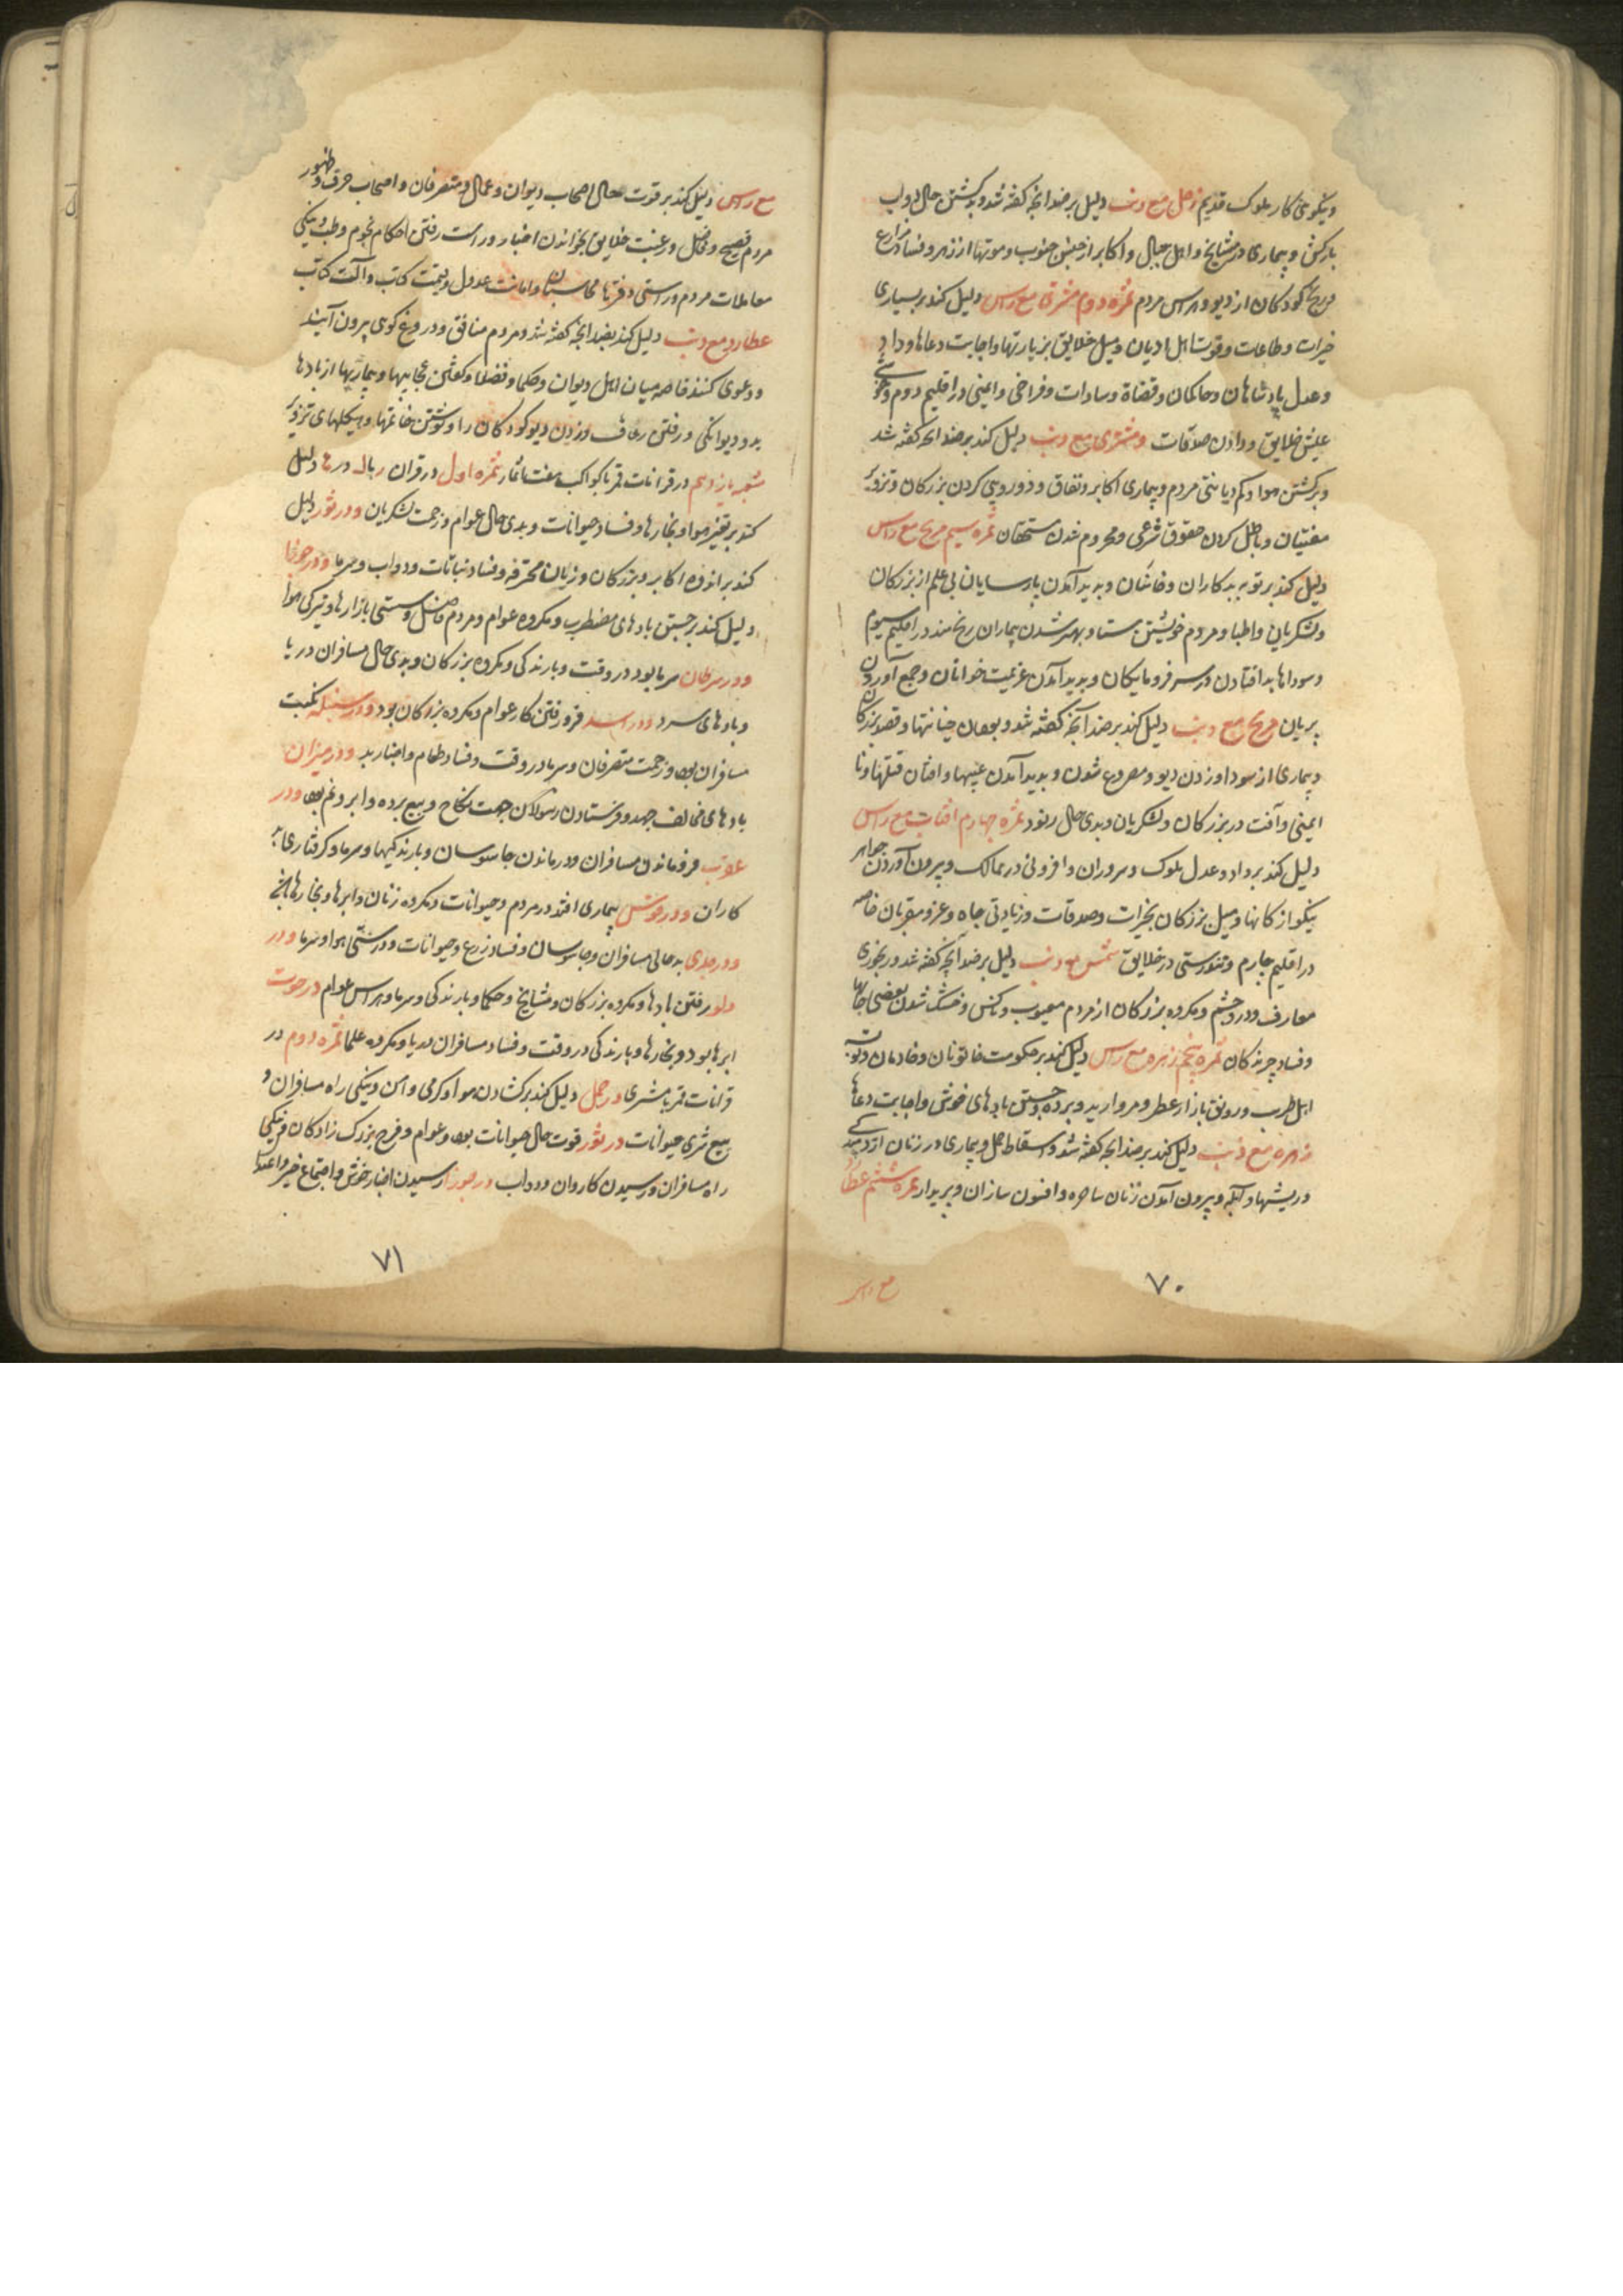 ونیکوئی کار ملوک قدیم زحل مع ذنب دلیل بر ضد آنچه گفته شد و برگشتن حال دولت
بارکش و بیماری در مشایخ و اهل جبال و اکابر از جنوب و موتها از زهر و فساد مزارع
و رنج کودکان از دیو و هراس مردم ثمره دوم مشتری مع راس دلیل کند بر بسیاری
خیرات و طاعات و قوت اهل ادیان و میل خلایق بزیارتها و اجابت دعاها و داد
و عدل پادشاهان و حاکمان و قضاة و سادات و فراخی و ایمنی در اقلیم دوم و خوشی
عیش خلایق و دادن صدقات و مشتری مع ذنب دلیل کند بر ضد آنچه گفته شد
و برگشتن هوا و کم دیانتی مردم و بیماری اکابر و نفاق و دورویی کردن بزرکان و تزویر
مفتیان و باطل کردن حقوق شرعی و محروم شدن مستحقان ثمره سیم مریخ مع راس
دلیل کند بر توبه بدکاران و و پدید آمدن پارسایان بی علم از بزرکان
و لشکریان و اطبا و مردم و بهتر شدن بیماران رنج مند در اقلیم سیوم
و سوداها بد افتادن در سر فرومایکان و پدید آمدن عزیمت خوانان و جمع آوردن
پریان مریخ مع ذنب دلیل کند بر ضد آنچه گفته شد و خیانتها و قصد بزرکان
و بیماری از سودا و زدن دیو و مصروع شدن و پدید آمدن و فتنها و نا
ایمنی و آفت در بزرکان و لشکریان و بدی حال ثمره چهارم افتاب مع راس
دلیل کند بر داد و عدل ملوک و سروران و افزونی در ممالک و بیرون آوردن جواهر
نیکو از کانها و میل بزرکان بخیرات و صدقات و زیادتی جاه و عز و مقربان خاصه
در اقلیم چارم و تندرستی در خلایق شمس مع ذنب دلیل بر ضد آنچه گفته شد و رنجوری
معارف و درد چشم و مکروه بزرکان از مردم معیوب و ناکس و خشک شدن بعضی جایها
و فساد چرندکان ثمره پنجم زهره مع راس دلیل کند بر حکومت خاتونان و خادمان و
اهل طرب و رونق بازار عطر و مروارید و برده و جستن بادهای خوش و اجابت دعاها
زهره مع ذنب دلیل کند بر ضد آنچه گفته شد و اسقاط حمل و بیماری در زنان از
و ریشها و آبله و بیرون آمدن زنان ساحره و افسون سازان و ثمره ششم عطارد
مع راس
۷۰
مع راس دلیل کند بر قوت حال اصحاب دیوان و عمال و متصرفان و اصحاب حرف و ظهور
مردم فصیح و فاضل و رغبت خلایق بخواندن اخبار و راست رفتن احکام نجوم و طب و نیکی
معاملات مردم و راستی دفترها محاسبان و امانت عدول و قیمت کتب و آلت کتابت
عطارد مع ذنب دلیل کند بضد آنچه گفته شد و مردم منافق و دروغ کوی بیرون آیند
و دعوی کنند خاصه میان اهل دیوان و حکما و فضلا و و بیماریها از بادها
بد و دیوانکی و رفتن رعاف و زدن دیو کودکان را و نوشتن خاتمها و هیکلهای تزویر
شعبه یازدهم در قرانات قمر با کواکب هفت ثمار ثمره اول در قران دلیل
کند بر تغیر هوا و بخارها و فساد حیوانات و بدی حال عوام و زحمت لشکریان و در ثور دلیل
کند بر اندوه اکابر و بزرکان و زیان محترفه و فساد نباتات و دواب و سرما و در جوزا
دلیل کند بر جستن بادهای مضطرب و مکروه عوام و مردم فاضل و سستی بازارها و تیرکی هوا
و در سرطان سرما بود در وقت و بارندکی و مکروه بزرکان و بدی حال مسافران دریا
و بادهای سرد و در اسد فرو رفتن کار عوام و مکروه بزرکان بود و در سنبله نکبت
مسافران بود و زحمت متصرفان و سرما در وقت و فساد طعام و اخبار بد و در میزان
بادهای مخالف جهد و فرستادن رسولان جهت نکاح و بیع برده و ابر و غم بود و در
عقرب فرو ماندن مسافران و درماندن جاسوسان و بارندکیها و سرما و کرفتاری
کاران و در قوس بیماری افتد در مردم و حیوانات و مکروه زنان و ابرها و بخارها
و در جدی بدحالی مسافران و جاسوسان و فساد زرع و حیوانات و درشتی هوا و سرما و در
دلو رفتن بادها و مکروه بزرکان و مشایخ و حکما و بارندکی و سرما و هراس عوام در حوت
ابرها بود و بخارها و بارندکی در وقت و فساد مسافران دریا و مکروه علما ثمره دوم در
قرانات قمر با مشتری در حمل دلیل کند بر کشادن هوا و کرمی و امن و نیکی راه مسافران و
بیع شری حیوانات در ثور قوت حال حیوانات بود و عوام و فرح بزرک زادکان و نیکی
راه مسافران و رسیدن کاروان و دواب در جوزا رسیدن اخبار خوش و اجتماع خیر و اعتدال
۷۱